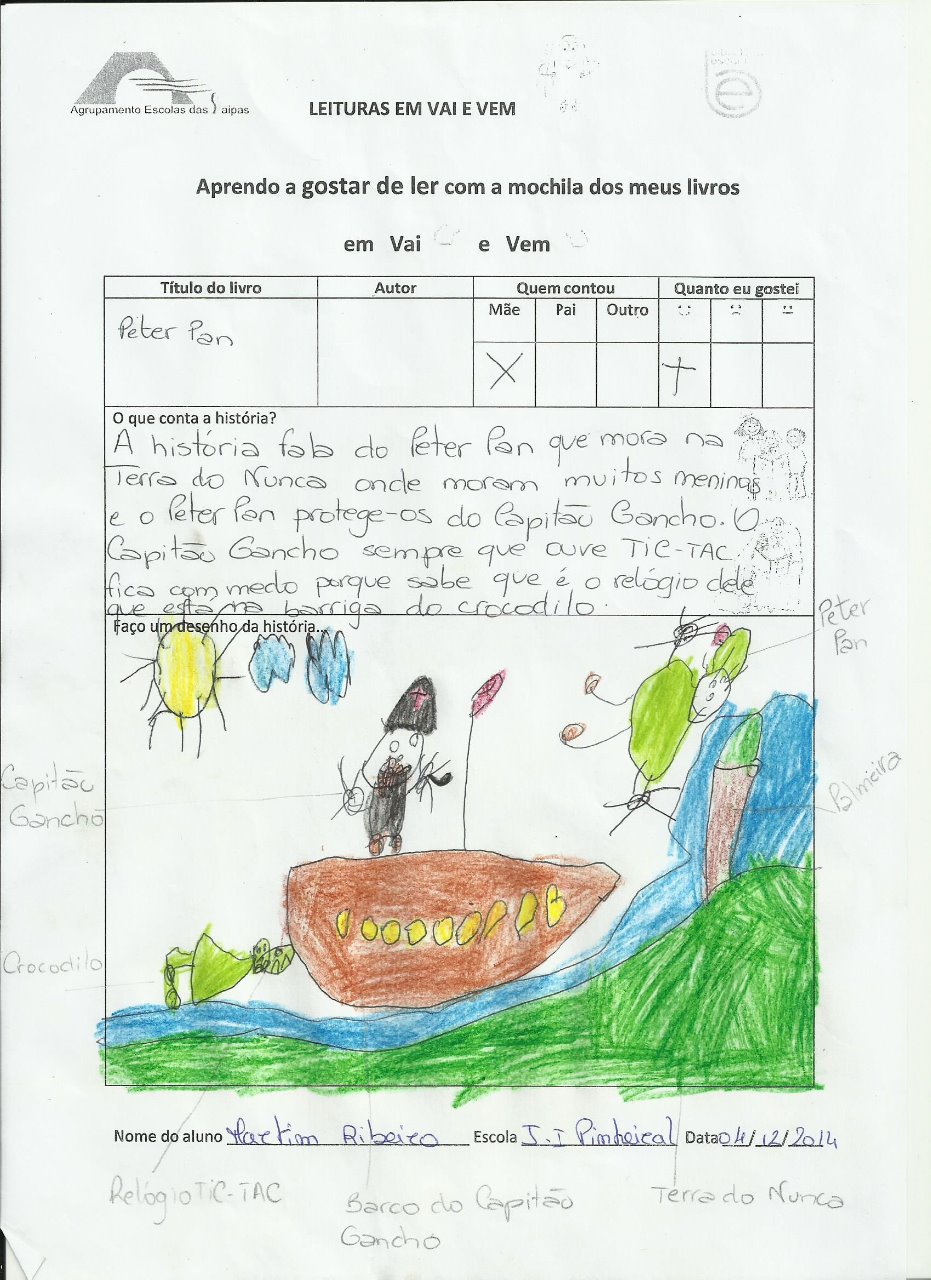 Agrupamento Escolas das Taipas
LEITURAS EM VAI E VEM
Aprendo a gostar de ler com a mochila dos meus livros
em Vai e Vem
Título do livro Autor Quem contou Quanto eu gostei
Mãe Pai Outro
Peter Pan
X
O que conta a história?
A história fala do Peter Pan que mora na
Terra do Nunca onde moram muitos meninos
e o Peter Pan protege-os do Capitão Gancho. O
Capitão Gancho sempre que ouve TiC-TAC
fica com medo porque sabe que é o relógio dele
que está na barriga do crocodilo.
Faço um desenho da história...
Peter
Pan
Capitão
Gancho
Palmeira
Crocodilo
Nome do aluno Martim Ribeiro Escola J.I Pinheiral Data 04/12/2014
Relógio TiC-TAC
Barco do Capitão
Gancho
Terra do Nunca